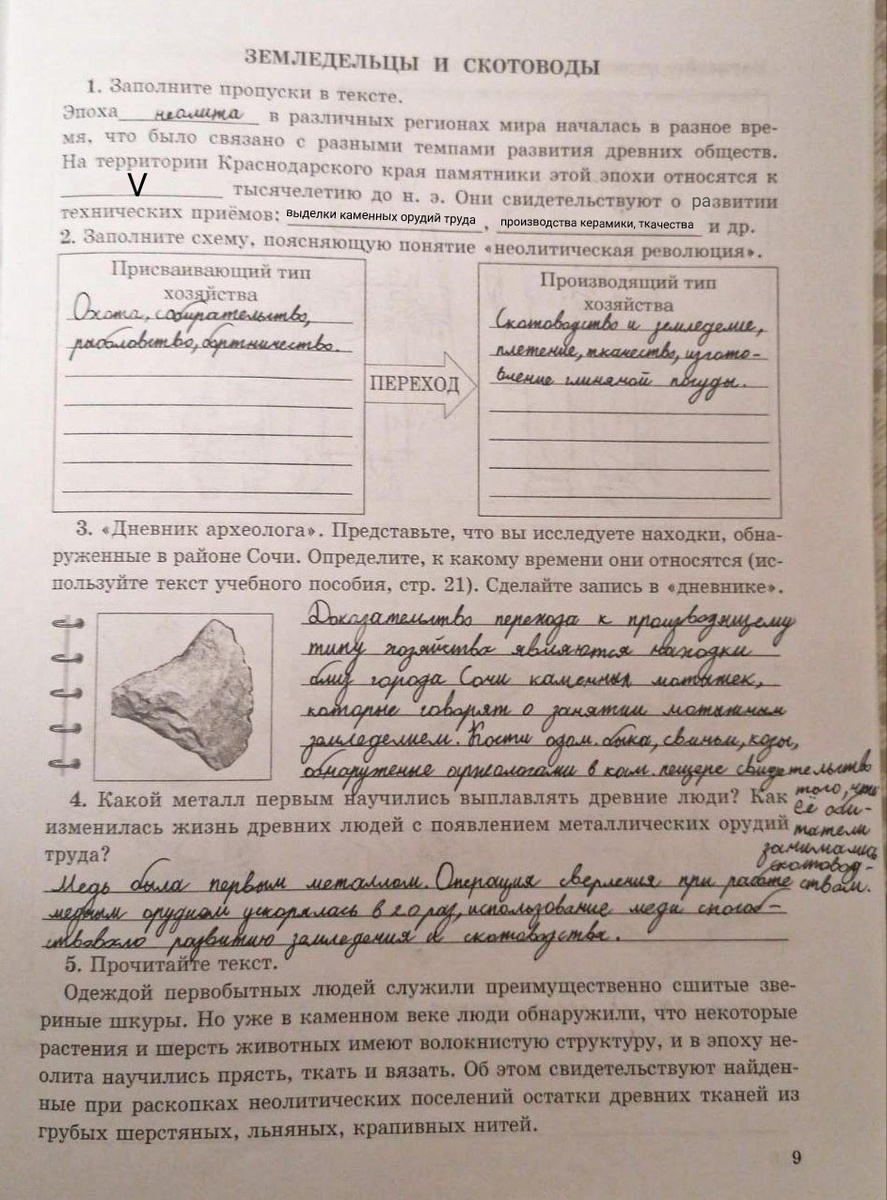 ЗЕМЛЕДЕЛЬЦЫ И СКОТОВОДЫ
1. Заполните пропуски в тексте.
Эпоха неолита в различных регионах мира началась в разное вре-
мя, что было связано с разными темпами развития древних обществ.
На территории Краснодарского края памятники этой эпохи относятся к
V тысячелетию до н. э. Они свидетельствуют о развитии
технических приёмов: выделки каменных орудий труда, производства керамики, ткачества и др.
2. Заполните схему, поясняющую понятие «неолитическая революция».
Присваивающий тип
хозяйства
Охота, собирательство,
рыболовство, бортничество.
ПЕРЕХОД
Производящий тип
хозяйства
Скотоводство и земледелие,
плетение, ткачество, изгото-
вление глиняной посуды.
3. «Дневник археолога». Представьте, что вы исследуете находки, обна-
руженные в районе Сочи. Определите, к какому времени они относятся (ис-
пользуйте текст учебного пособия, стр. 21). Сделайте запись в «дневнике».
Доказательство перехода к производящему
типу хозяйства являются находки
близ города Сочи каменных мотытек,
которые говорят о занятии мотыжным
земледелием. Кости одом. быка, свиньи, козы,
обнаруженые археологами в кам. пещере свидетельство
того, что
ее оби-
татели
занимались
скотовод-
ством.
4. Какой металл первым научились выплавлять древние люди? Как
изменилась жизнь древних людей с появлением металлических орудий
труда?
Медь была первым металлом. Операция сверления при работе
медным орудием ускорялась в 20 раз, использование меди способ-
ствовало развитию земледения и скотоводства.
5. Прочитайте текст.
Одеждой первобытных людей служили преимущественно сшитые зве-
риные шкуры. Но уже в каменном веке люди обнаружили, что некоторые
растения и шерсть животных имеют волокнистую структуру, и в эпоху не-
олита научились прясть, ткать и вязать. Об этом свидетельствуют найден-
ные при раскопках неолитических поселений остатки древних тканей из
грубых шерстяных, льняных, крапивных нитей.
9